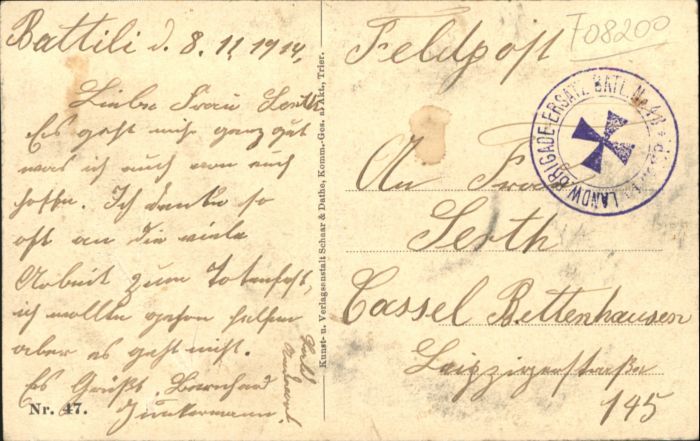 Battili d. 8.11.1914,
Liebe Frau Serth
Es geht mihr ganz gut
was ich auch von euch
hoffe. Ich denke so
oft an die viele
Arbeit zum Totenfest,
ich wollte gern helfen
aber es geht nicht.
Es Grüßt Bernhard
Junkermann.
Nr. 47.
Kunst- u. Verlagsanstalt Schaar & Dathe, Komm.-Ges. a. Akt., Trier.
Feldpost
F08200
LANDW. BRIGADE-ERSATZ BATL. No
An Frau
Serth
Cassel Bettenhausen
Leipzigerstraße
145